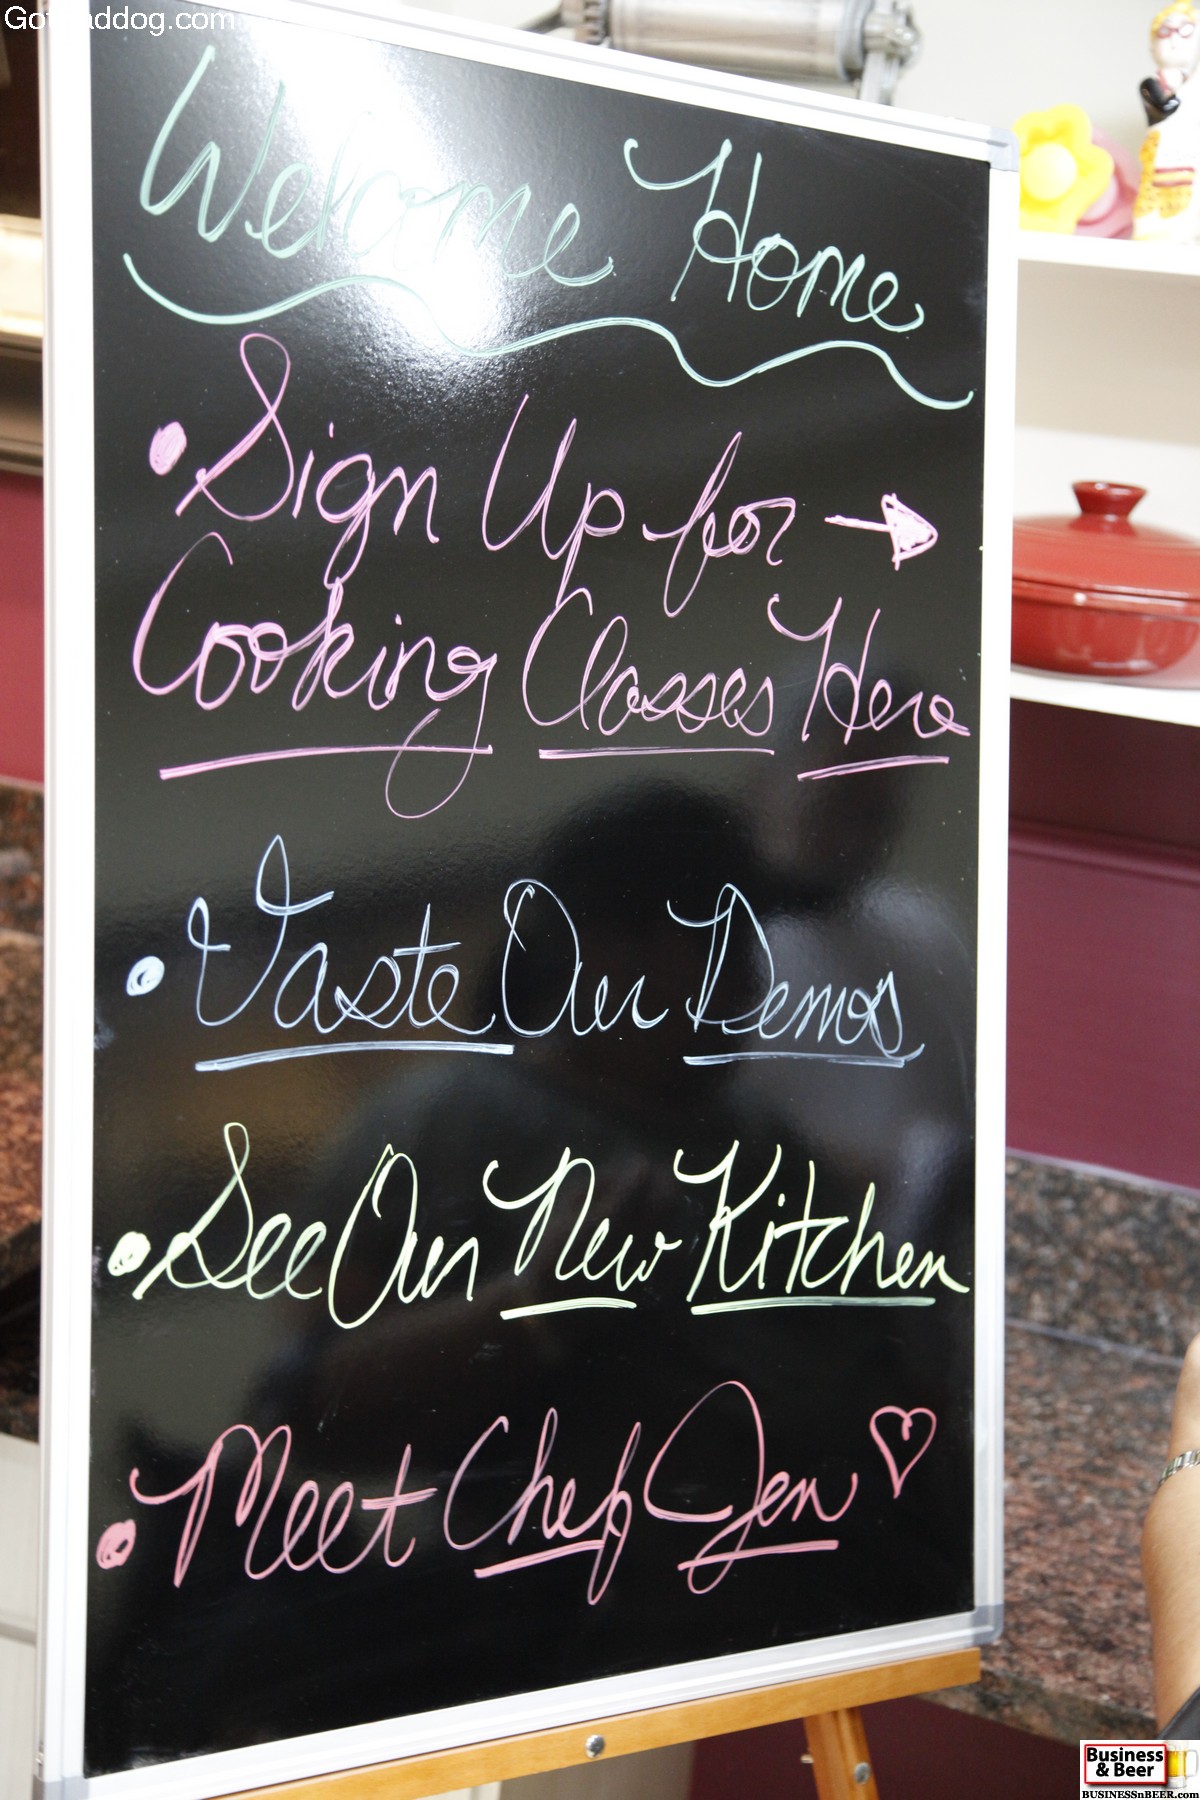 Welcome Home
• Sign Up for →
Cooking Classes Here
• Taste Our Demos
• See Our New Kitchen
• Meet Chef Jen ♡
Business
& Beer
BUSINESSnBEER.com